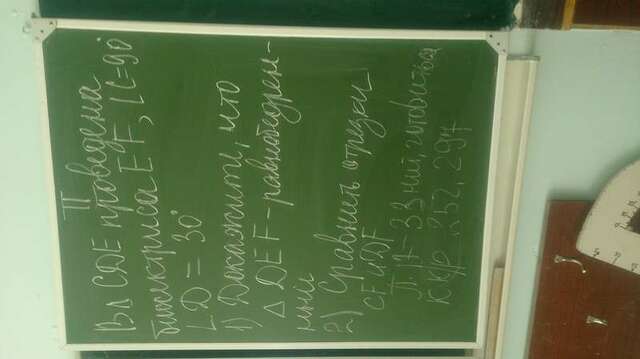 II
В △ CDE проведена
биссектриса EF, ∠C=90°
∠D = 30°
1) Докажите, что
△ DEF - равнобедрен-
ный
2) Сравнить отрезки
CF и DF
П. 17-33
к к/р 252, 294